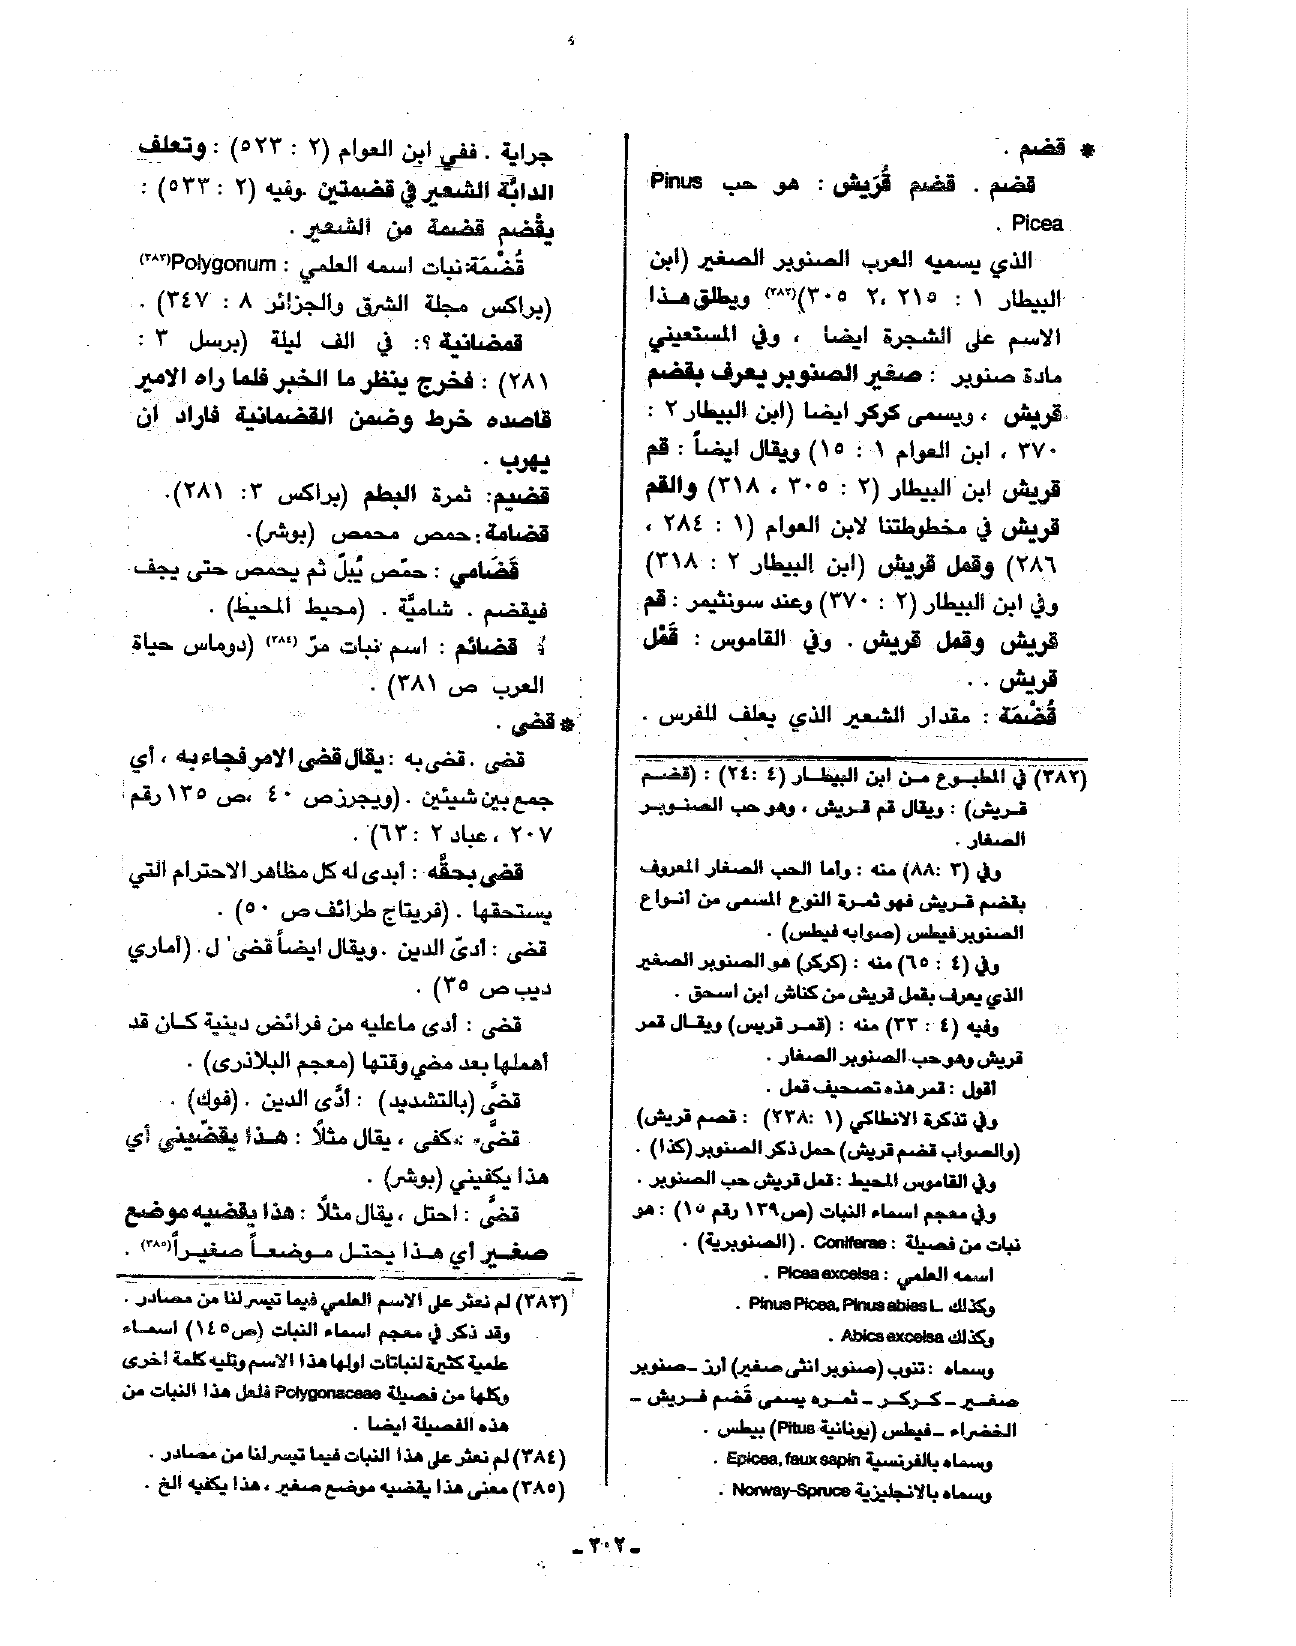 * قضم .
قضم . قضم قُرَيش : هو حب Pinus
Picea .
الذي يسميه العرب الصنوبر الصغير (ابن
البيطار ١ : ٢١٥ ، ٢ ٣٠٥)(٣٨٢) ويطلق هذا
الاسم على الشجرة ايضا ، وفي المستعيني
مادة صنوبر : صغير الصنوبر يعرف بقضم
قريش ، ويسمى كركر ايضا (ابن البيطار ٢ :
٣٧٠ ، ابن العوام ١ : ١٥) ويقال ايضاً : قم
قريش ابن البيطار (٢ : ٣٠٥ ، ٣١٨) والقم
قريش في مخطوطتنا لابن العوام (١ : ٢٨٤ ،
٢٨٦) وقمل قريش (ابن البيطار ٢ : ٣١٨)
وفي ابن البيطار (٢ : ٣٧٠) وعند سونثيمر : قم
قريش وقمل قريش . وفي القاموس : قَمْل
قريش . .
قُضْمَة : مقدار الشعير الذي يعلف للفرس .
(٣٨٢) في المطبوع من ابن البيطار (٤ :٢٤) : (قضم
قريش) : ويقال قم قريش ، وهو حب الصنوبر
الصغار .
وفي (٣ :٨٨) منه : وأما الحب الصغار المعروف
بقضم قريش فهو ثمرة النوع المسمى من أنواع
الصنوبر فيطس (صوابه فيطس) .
وفي (٤ : ٦٥) منه : (كركر) هو الصنوبر الصغير
الذي يعرف بقمل قريش من كناش ابن اسحق .
وفيه (٤ : ٣٣) منه : (قمر قريس) ويقال قمر
قريش وهو حب الصنوبر الصغار .
أقول : قمر هذه تصحيف قمل .
وفي تذكرة الانطاكي (١ :٢٣٨) : قصم قريش)
(والصواب قضم قريش) حمل ذكر الصنوبر (كذا) .
وفي القاموس المحيط : قمل قريش حب الصنوبر .
وفي معجم اسماء النبات (ص١٣٩ رقم ١٥) : هو
نبات من فصيلة : Coniferae . (الصنوبرية) .
اسمه العلمي : Picea excelsa .
وكذلك Pinus Picea, Pinus abies L .
وكذلك Abics excelsa .
وسماه : تنوب (صنوبر انثى صغير) أرز ــ صنوبر
صغير ــ كركر ــ ثمره يسمى قَضم قريش ــ
الخضراء ــ فيطس (يونانية Pitus) بيطس .
وسماه بالفرنسية Epicea, faux sapin .
وسماه بالانجليزية Norway-Spruce .
جراية . ففي ابن العوام (٢ : ٥٢٣) : وتعلف
الدابَّة الشعير في قضمتين . وفيه (٢ : ٥٣٣) :
يقْضم قضمة من الشعير .
قُضْمَة: نبات اسمه العلمي : Polygonum(٣٨٣)
(براكس مجلة الشرق والجزائر ٨ : ٣٤٧) .
قمضانية ؟: في الف ليلة (برسل ٣ :
٢٨١) : فخرج ينظر ما الخبر فلما راه الامير
قاصده خرط وضمن القضمانية فاراد ان
يهرب .
قضيم: ثمرة البطم (براكس ٣: ٢٨١).
قضامة : حمص محمص (بوشر).
قَضَامي : حمّص يُبلّ ثم يحمص حتى يجف
فيقضم . شاميَّة . (محيط المحيط) .
قضائم : اسم نبات مرّ (٣٨٤) (دوماس حياة
العرب ص ٣٨١) .
* قضى .
قضى . قضى به : يقال قضى الامر فجاء به ، أي
جمع بين شيئين . (ويجرز ص ٤٠ ،ص ١٣٥ رقم
٢٠٧ ، عباد ٢ : ٦٣) .
قضى بحقَّه : أبدى له كل مظاهر الاحترام التي
يستحقها . (فريتاج طرائف ص ٥٠) .
قضى : أدىّ الدين . ويقال ايضاً قضى ل . (أماري
ديب ص ٣٥) .
قضى : أدى ماعليه من فرائض دينية كان قد
أهملها بعد مضي وقتها (معجم البلاذرى) .
قضَّى (بالتشديد) : أدَّى الدين . (فوك) .
قضَّى : كفى ، يقال مثلاً : هذا يقضّيني أي
هذا يكفيني (بوشر) .
قضَّى : احتل ، يقال مثلاً : هذا يقضيه موضع
صغير أي هذا يحتل موضعاً صغيراً(٣٨٥) .
(٣٨٣) لم نعثر على الاسم العلمي فيما تيسر لنا من مصادر .
وقد ذكر في معجم اسماء النبات (ص١٤٥) اسماء
علمية كثيرة لنباتات اولها هذا الاسم وتليه كلمة اخرى
وكلها من فصيلة Polygonaceae فلعل هذا النبات من
هذه الفصيلة ايضا .
(٣٨٤) لم نعثر على هذا النبات فيما تيسر لنا من مصادر .
(٣٨٥) معنى هذا يقضيه موضع صغير ، هذا يكفيه الخ .
ــ ٣٠٢ ــ